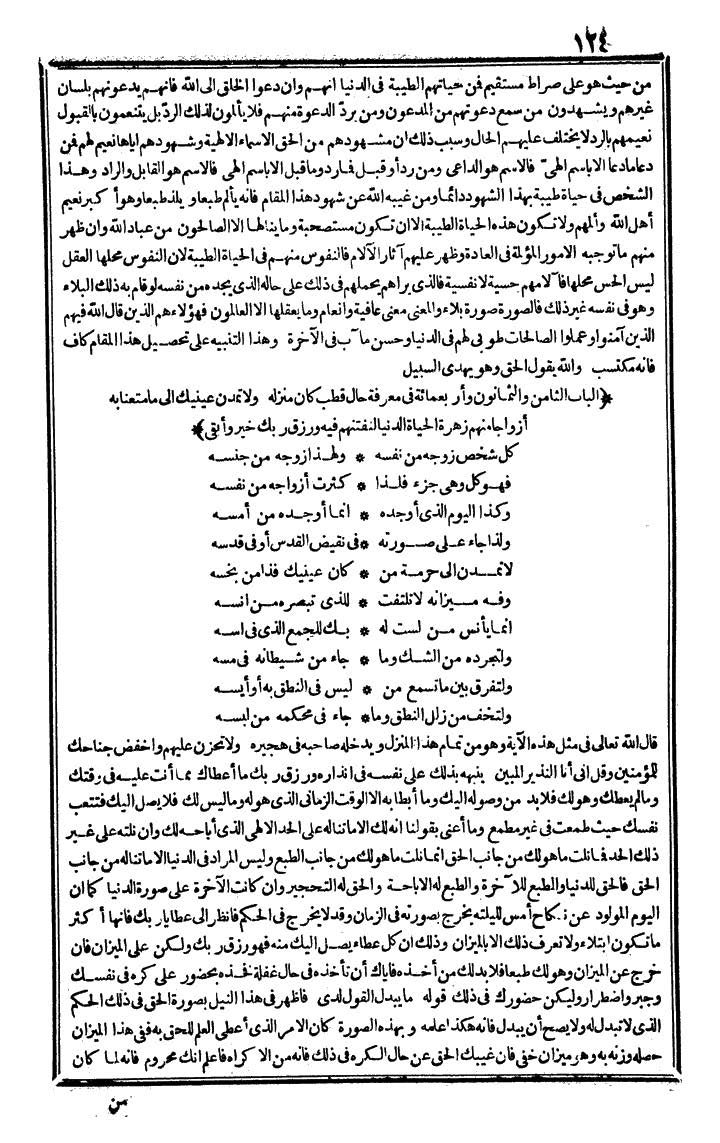 ١٢٤
من حيث هو على صراط مستقيم فمن حياتهم الطيبة فى الدنيا انهم وان دعوا الخلق الى الله فانهم يدعونهم بلسان
غيرهم ويشهدون من سمع دعوتهم من المدعون ومن يردّ الدعوة منهم فلا يألمون لذلك الردّ بل يتنعمون بالقبول
نعيمهم بالرد لا يختلف عليهم الحال وسبب ذلك ان مشهودهم من الحق الاسماء الالهية وشهودهم اياها نعيم لهم فمن
دعا ما دعا الا باسم الهىّ فالاسم هو الداعى ومن ردّ أو قبل فما رد وما قبل الا باسم الهى فالاسم هو القابل والراد وهذا
الشخص فى حياة طيبة بهذا الشهود دائما ومن غيبه الله عن شهود هذا المقام فانه يألم طبعا ويلذ طبعا وهو أكبر نعيم
أهل الله وألمهم ولا تكون هذه الحياة الطيبة الا ان تكون مستصحبة وما ينالها الا الصالحون من عباد الله وان ظهر
منهم ما توجبه الامور المؤلمة فى العادة وظهر عليهم آثار الآلام فالنفوس منهم فى الحياة الطيبة لان النفوس محلها العقل
ليس الحس محلها فآلامهم حسية لا نفسية فالذى يراهم يحملهم فى ذلك على حاله الذى يجده من نفسه لو قام به ذلك البلاء
وهو فى نفسه غير ذلك فالصورة صورة بلاء والمعنى معنى عافية وانعام وما يعقلها الا العالمون فهؤلاء هم الذين قال الله فيهم
الذين آمنوا وعملوا الصالحات طوبى لهم فى الدنيا وحسن مآب فى الآخرة وهذا التنبيه على تحصيل هذا المقام كاف
فانه مكتسب والله يقول الحق وهو يهدى السبيل
﴿الباب الثامن والثمانون وأربعمائة فى معرفة حال قطب كان منزله ولا تمدن عينيك الى ما متعنا به
أزواجا منهم زهرة الحياة الدنيا لنفتنهم فيه ورزق ربك خير وأبقى﴾
كل شخص زوجه من نفسه * ولهذا زوجه من جنسه
فهو كل وهى جزء فلذا * كثرت أزواجه من نفسه
وكذا اليوم الذى أوجده * انما أوجده من أمسه
ولذا جاء على صورته * فى نقيض القدس أو فى قدسه
لا تمدن الى حرمة من * كان عينيك فذا من بخسه
وفه ميزانه لا تلتفت * للذى تبصره من انسه
انما يأنس من لست له * بك للجمع الذى فى اسه
ولتجرده من الشك وما * جاء من شيطانه فى مسه
ولتفرق بين ما تسمع من * ليس فى النطق به أو أيسه
ولتخف من زلل النطق وما * جاء فى محكمه من لبسه
قال الله تعالى فى مثل هذه الآية وهو من تمام هذا المنزل ويدخله صاحبه فى هجيره ولا تحزن عليهم واخفض جناحك
للمؤمنين وقل انى أنا النذير المبين ينبهه بذلك على نفسه فى انذاره ورزق ربك ما أعطاك مما أنت عليه فى وقتك
وما لم يعطك وهو لك فلا بد من وصوله اليك وما أبطا به الا الوقت الزمانى الذى هو له وما ليس لك فلا يصل اليك فتتعب
نفسك حيث طمعت فى غير مطمع وما أعنى بقولنا انه لك الا ما تناله على الحد الالهى الذى أباحه لك وان نلته على غير
ذلك الحد فما نلت ما هو لك من جانب الحق انما نلت ما هو لك من جانب الطبع وليس المراد فى الدنيا الا ما تناله من جانب
الحق فالحق للدنيا والطبع للآخرة والطبع له الاباحة والحق له التحجير وان كانت الآخرة على صورة الدنيا كما ان
اليوم المولود عن نكاح أمس لليلته يخرج بصورته فى الزمان وقد لا يخرج فى الحكم فانظر الى عطايا ربك فانها أكثر
ما تكون ابتلاء ولا تعرف ذلك الا بالميزان وذلك ان كل عطاء يصل اليك منه فهو رزق ربك ولكن على الميزان فان
خرج عن الميزان وهو لك طبعا فلا بد لك من أخذه فاياك أن تأخذه فى حال غفلة فخذه بحضور على كره فى نفسك
وجبر واضطرار وليكن حضورك فى ذلك قوله ما يبدل القول لدى فاظهر فى هذا النيل بصورة الحق فى ذلك الحكم
الذى لا تبدل له ولا يصح أن يبدل فانه هكذا علمه وبهذه الصورة كان الامر الذى أعطى العلم للحق به ففى هذا الميزان
حصله وزنه به وهو ميزان خفى فان غيبك الحق عن حال الكره فى ذلك فانه من الاكراه فاعلم انك محروم فانه لما كان
من